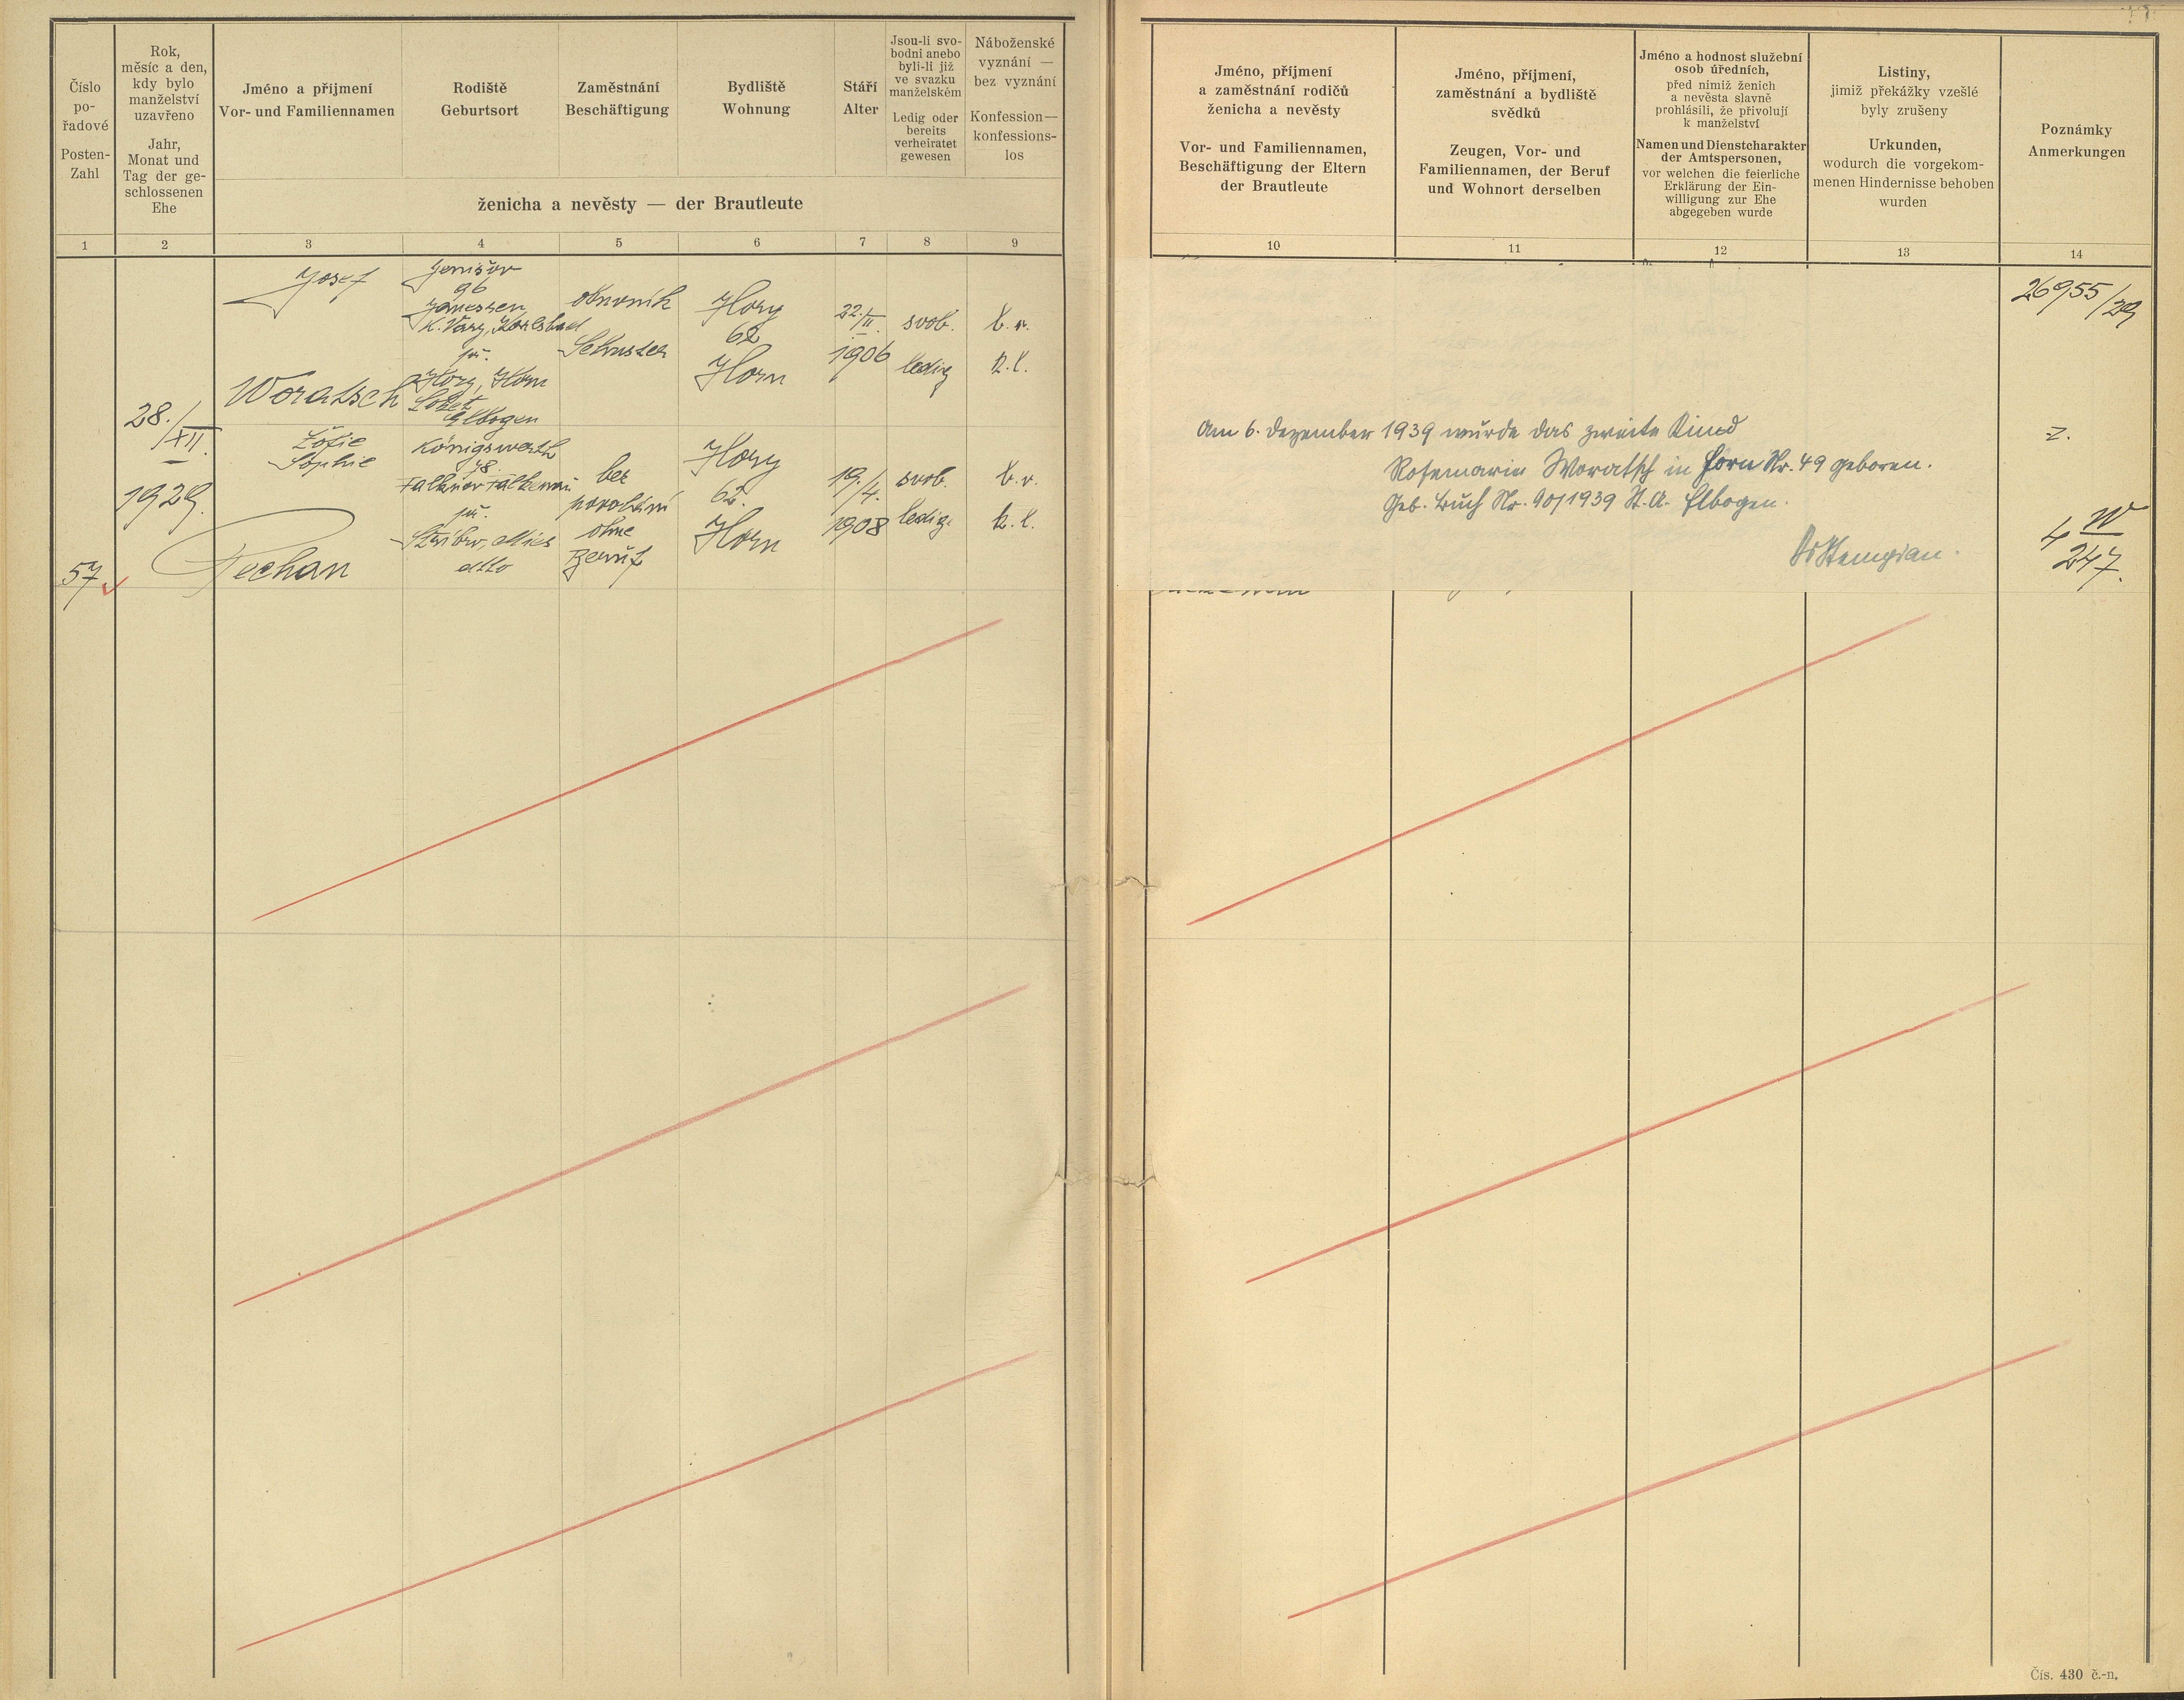 Číslo
po-
řadové
Posten-
Zahl
Rok,
měsíc a den,
kdy bylo
manželství
uzavřeno
Jahr,
Monat und
Tag der ge-
schlossenen
Ehe
Jméno a přijmení
Vor- und Familiennamen
Rodiště
Geburtsort
Zaměstnání
Beschäftigung
Bydliště
Wohnung
Stáří
Alter
Jsou-li svo-
bodni anebo
byli-li již
ve svazku
manželském
Ledig oder
bereits
verheiratet
gewesen
Náboženské
vyznání —
bez vyznání
Konfession—
konfessions-
los
ženicha a nevěsty — der Brautleute
1 2 3 4 5 6 7 8 9
Josef
Woratsch
Jenišov
96
Janessen
K. Vary, Karlsbad
př.
Hory, Horn
Loket
Elbogen
obuvník
Schuster
Hory
62
Horn
22./II.
1906
svob.
ledig
b. v.
k. l.
28./XII.
1929.
57
Žofie
Sophie
Pechan
Königswerth
78
Falknov Falkenau
př.
Stříbro, Mies
dtto
bez
povolání
ohne
Beruf
Hory
62.
Horn
19./4.
1908
svob.
ledig.
b. v.
k. l.
Jméno, příjmení
a zaměstnání rodičů
ženicha a nevěsty
Vor- und Familiennamen,
Beschäftigung der Eltern
der Brautleute
Jméno, příjmení,
zaměstnání a bydliště
svědků
Zeugen, Vor- und
Familiennamen, der Beruf
und Wohnort derselben
Jméno a hodnost služební
osob úředních,
před nimiž ženich
a nevěsta slavně
prohlásili, že přivolují
k manželství
Namen und Dienstcharakter
der Amtspersonen,
vor welchen die feierliche
Erklärung der Ein-
willigung zur Ehe
abgegeben wurde
Listiny,
jimiž překážky vzešlé
byly zrušeny
Urkunden,
wodurch die vorgekom-
menen Hindernisse behoben
wurden
Poznámky
Anmerkungen
10 11 12 13 14
26955/29
Am 6. Dezember 1939 wurde das zweite Kind
Rosemarie Woratsch in Horn Nr. 49 geboren.
Geb. Buch Nr. 90/1939 St. A. Elbogen.
z.
4 W
247.
Čís. 430 č.-n.